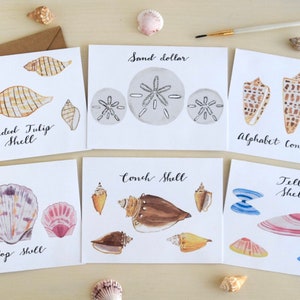 Sand dollar
ded Tulip
Shell
Alphabet Con
Conch Shell
op Shell
Tell
She